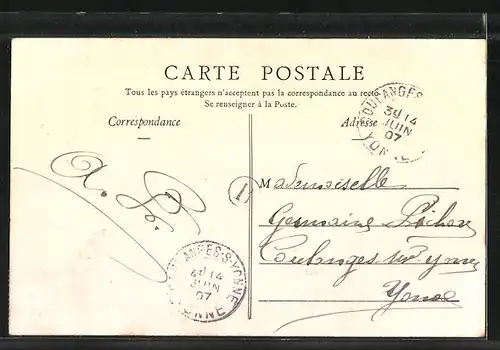 CARTE POSTALE
Tous les pays étrangers n'acceptent pas la correspondance au recto.
Se renseigner à la Poste.
Correspondance
Adresse
COULANGES
14
JUIN
07
YONNE
Mademoiselle
Germaine
Coulanges sur Yonne
Yonne
COULANGES-S-YONNE
14
JUIN
07
YONNE